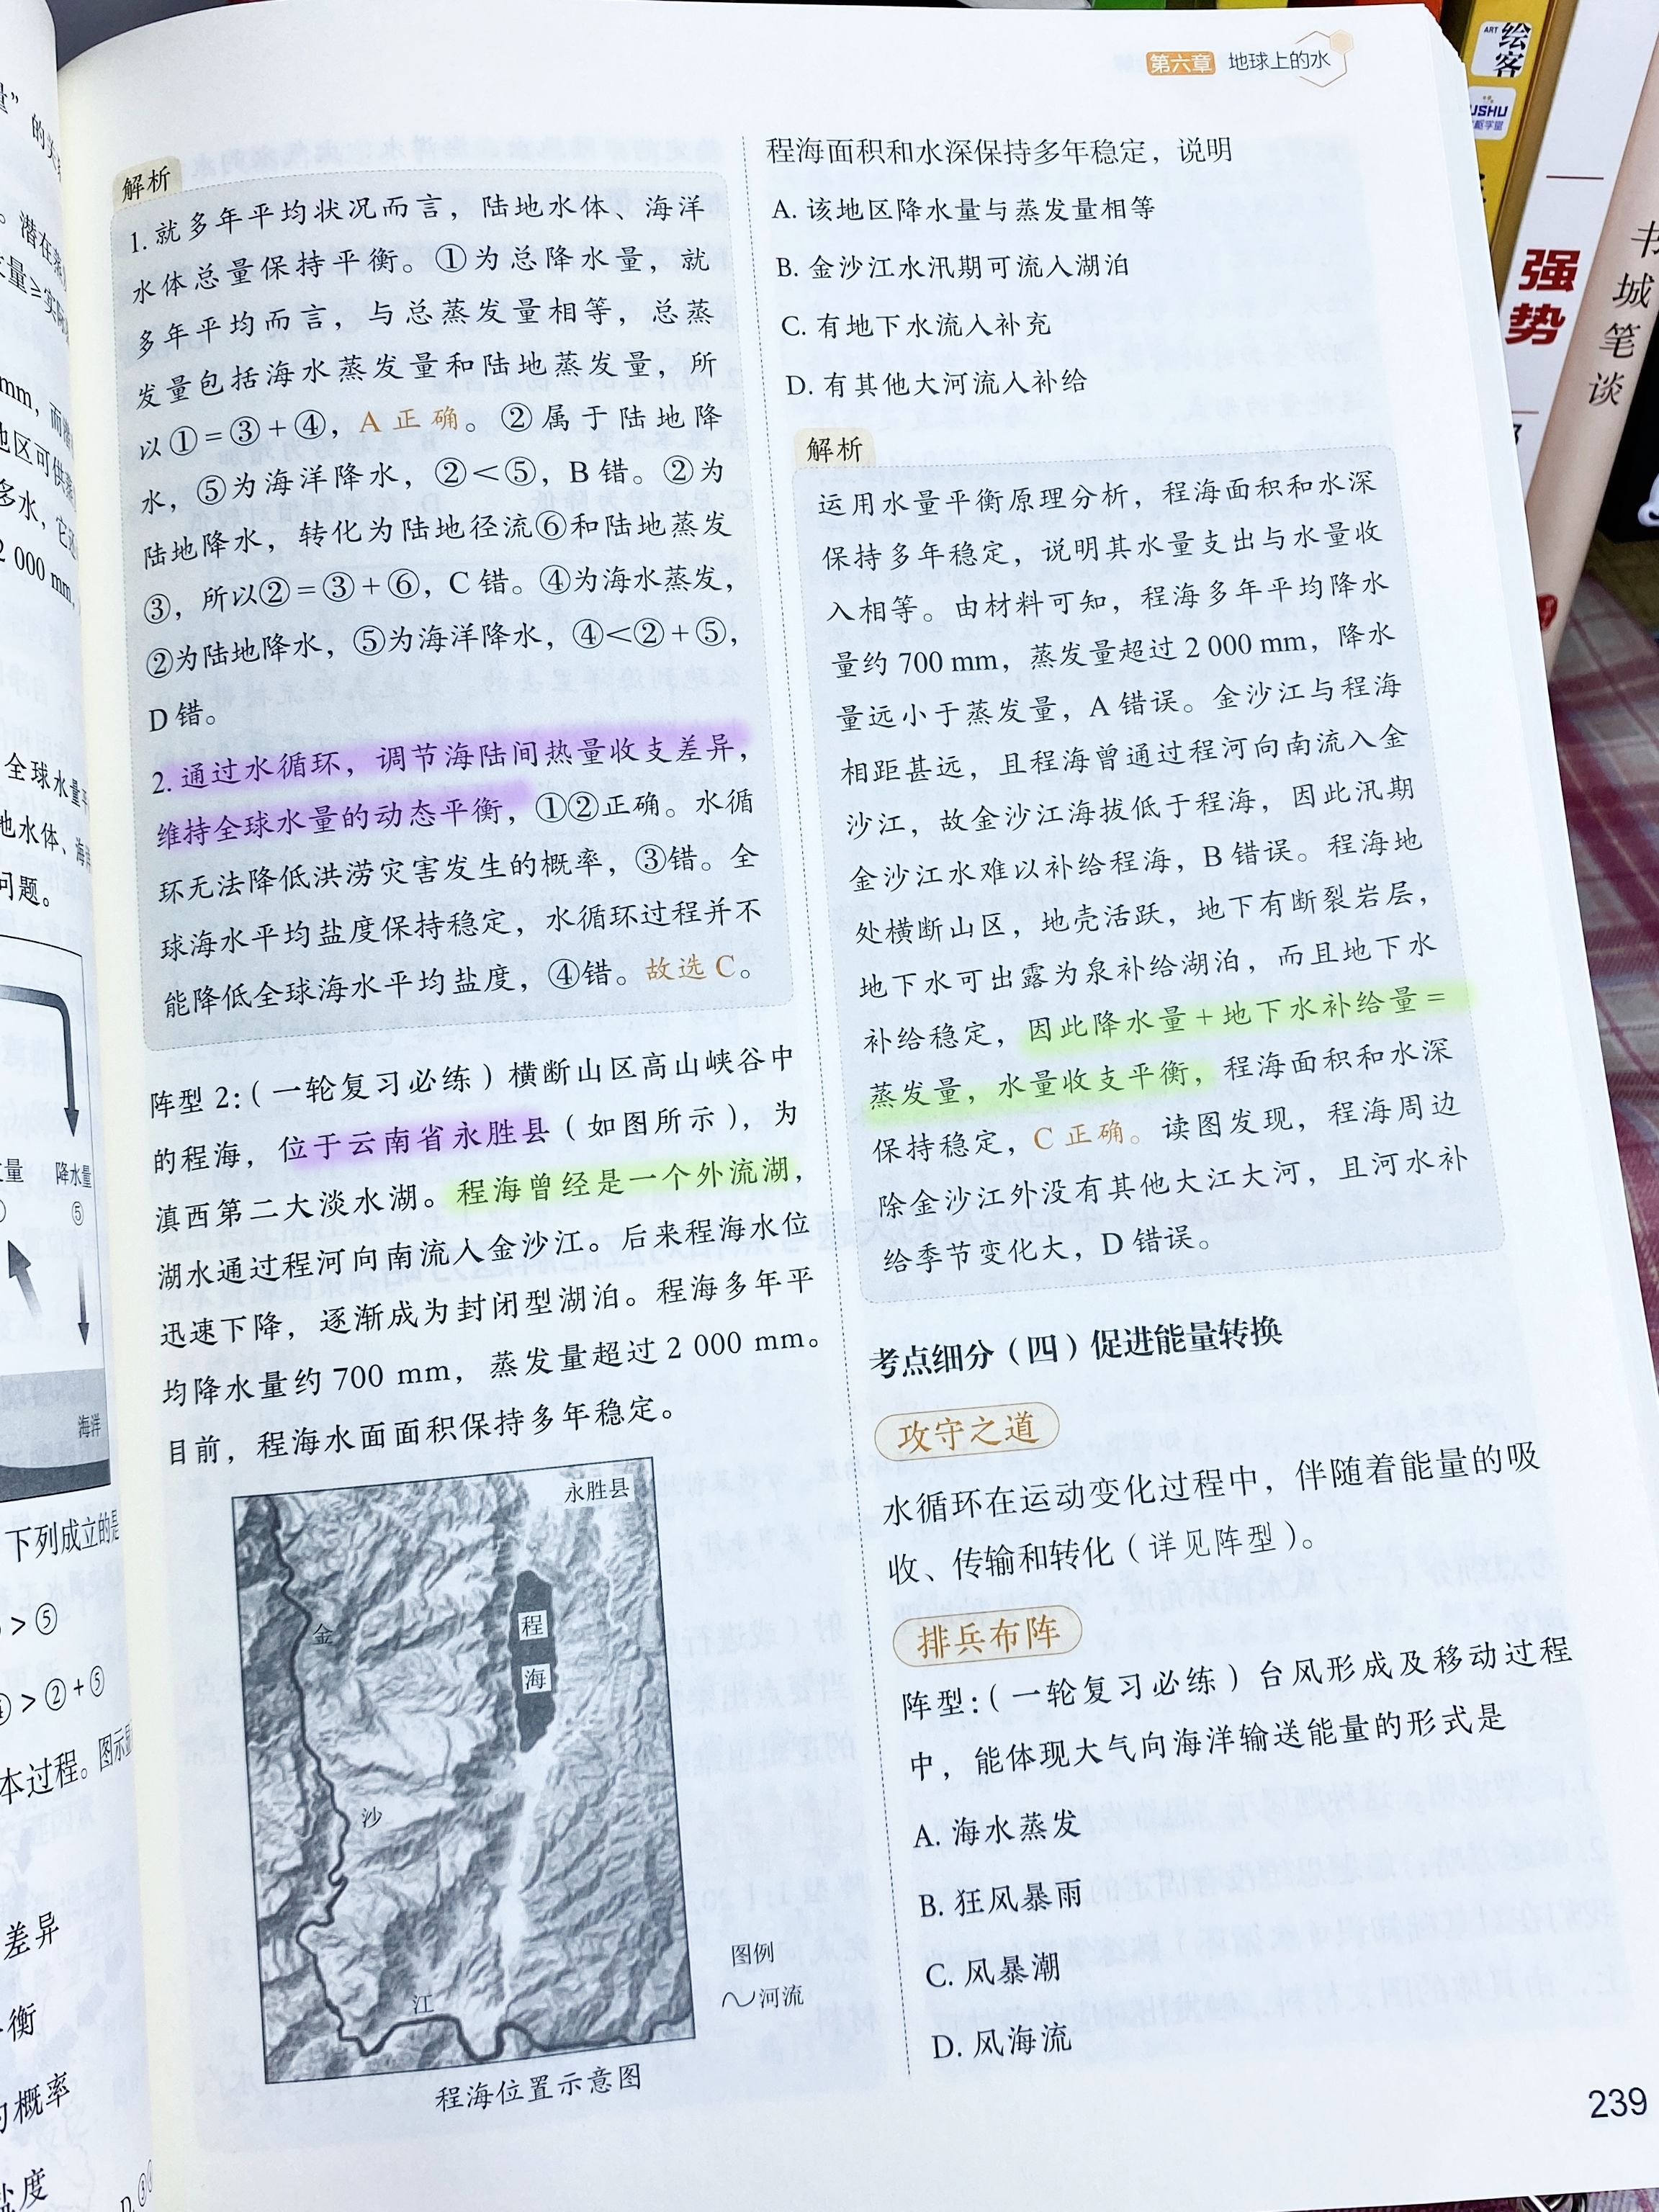 第六章 地球上的水
解析
1. 就多年平均状况而言，陆地水体、海洋
水体总量保持平衡。①为总降水量，就
多年平均而言，与总蒸发量相等，总蒸
发量包括海水蒸发量和陆地蒸发量，所
以①=③+④，A 正确。②属于陆地降
水，⑤为海洋降水，②<⑤，B 错。②为
陆地降水，转化为陆地径流⑥和陆地蒸发
③，所以②=③+⑥，C 错。④为海水蒸发，
②为陆地降水，⑤为海洋降水，④<②+⑤，
D 错。
2. 通过水循环，调节海陆间热量收支差异，
维持全球水量的动态平衡，①②正确。水循
环无法降低洪涝灾害发生的概率，③错。全
球海水平均盐度保持稳定，水循环过程并不
能降低全球海水平均盐度，④错。故选 C。
阵型 2：（一轮复习必练）横断山区高山峡谷中
的程海，位于云南省永胜县（如图所示），为
滇西第二大淡水湖。程海曾经是一个外流湖，
湖水通过程河向南流入金沙江。后来程海水位
迅速下降，逐渐成为封闭型湖泊。程海多年平
均降水量约 700 mm，蒸发量超过 2 000 mm。
目前，程海水面面积保持多年稳定。
永胜县
程
海
金
沙
江
图例
河流
程海位置示意图
程海面积和水深保持多年稳定，说明
A. 该地区降水量与蒸发量相等
B. 金沙江水汛期可流入湖泊
C. 有地下水流入补充
D. 有其他大河流入补给
解析
运用水量平衡原理分析，程海面积和水深
保持多年稳定，说明其水量支出与水量收
入相等。由材料可知，程海多年平均降水
量约 700 mm，蒸发量超过 2 000 mm，降水
量远小于蒸发量，A 错误。金沙江与程海
相距甚远，且程海曾通过程河向南流入金
沙江，故金沙江海拔低于程海，因此汛期
金沙江水难以补给程海，B 错误。程海地
处横断山区，地壳活跃，地下有断裂岩层，
地下水可出露为泉补给湖泊，而且地下水
补给稳定，因此降水量+地下水补给量=
蒸发量，水量收支平衡，程海面积和水深
保持稳定，C 正确。读图发现，程海周边
除金沙江外没有其他大江大河，且河水补
给季节变化大，D 错误。
考点细分（四）促进能量转换
攻守之道
水循环在运动变化过程中，伴随着能量的吸
收、传输和转化（详见阵型）。
排兵布阵
阵型：（一轮复习必练）台风形成及移动过程
中，能体现大气向海洋输送能量的形式是
A. 海水蒸发
B. 狂风暴雨
C. 风暴潮
D. 风海流
239
全球水量
问题。
降水量
⑤
海洋
下列成立的是
>⑤
>②+⑤
本过程。图示
差异
衡
概率
盐度
绘客
强势
书城笔谈